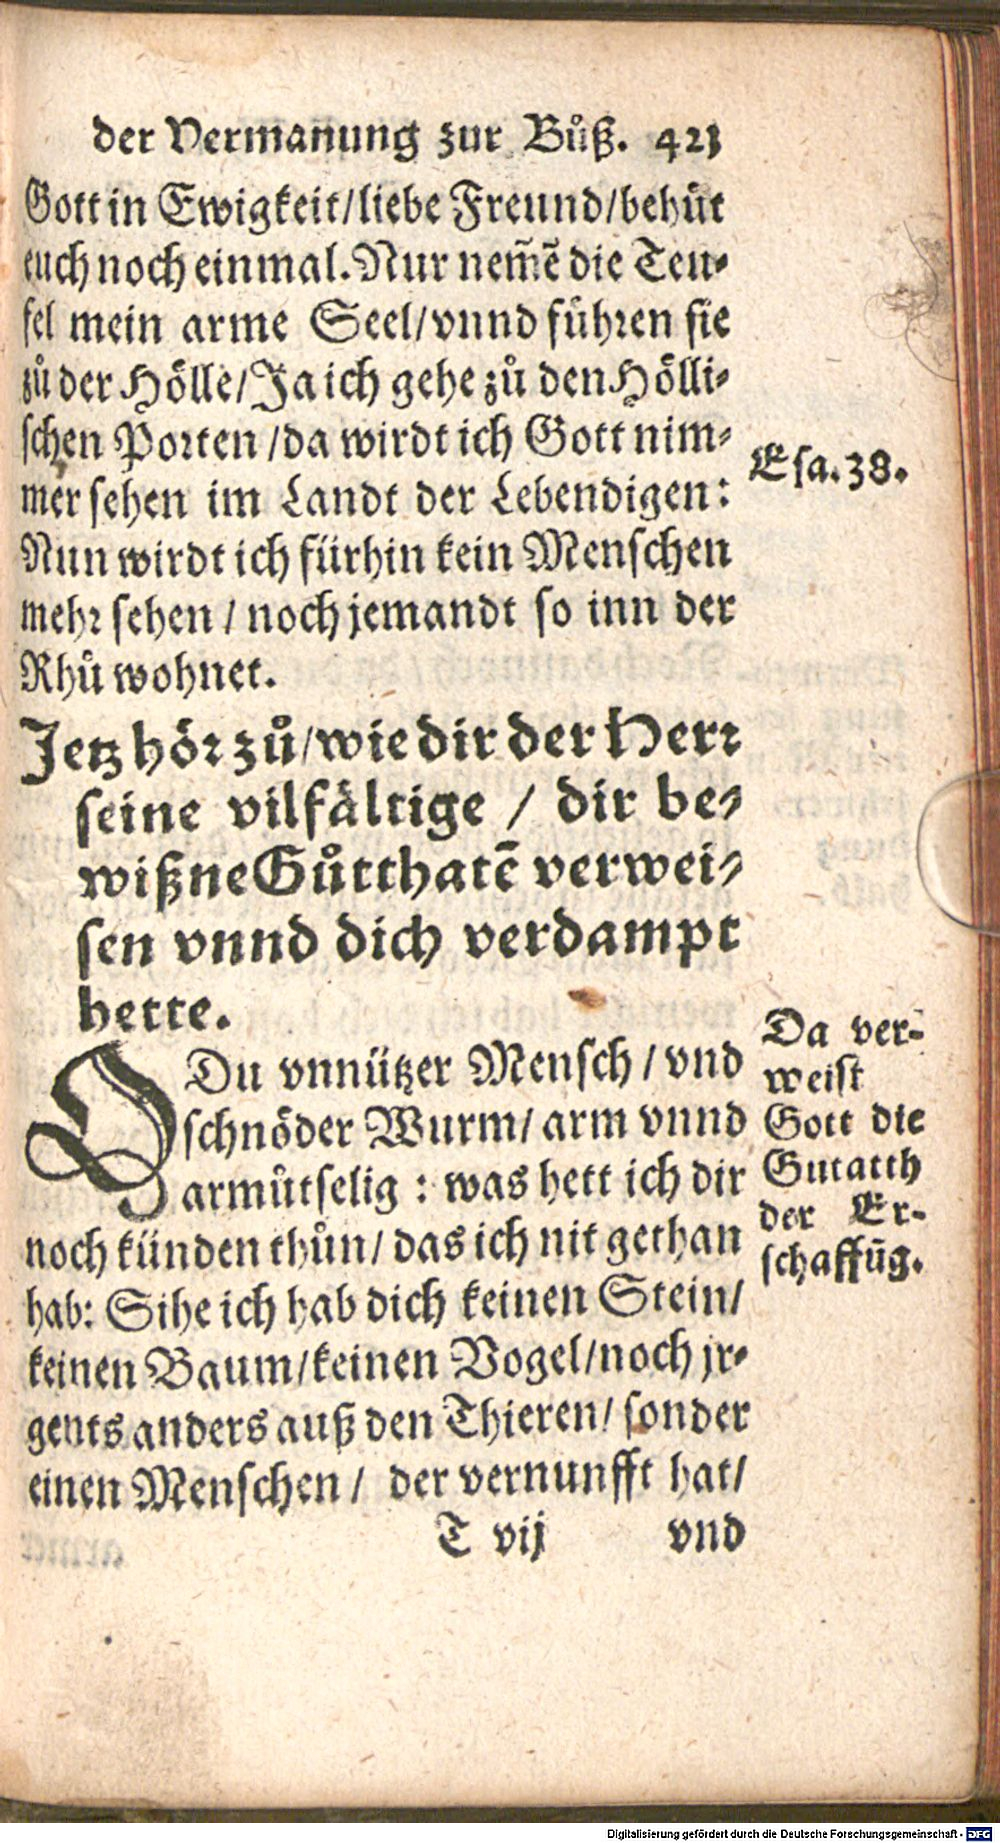 der Vermanung zur Bůß. 423
Gott in Ewigkeit/liebe Freund/behüt
euch noch einmal. Nur nem̃ẽ die Teu-
fel mein arme Seel/vnnd führen sie
zů der Hölle/Ja ich gehe zů den Hölli-
schen Porten/da wirdt ich Gott nim-
mer sehen im Landt der Lebendigen:
Nun wirdt ich fürhin kein Menschen
mehr sehen/noch jemandt so inn der
Rhů wohnet.
Esa. 38.
Jetz hör zů/wie dir der Herr
seine vilfältige / dir be-
wißne Gůtthatẽ verwei-
sen vnnd dich verdampt
hette.
O Du vnnützer Mensch/vnd
schnöder Wurm/arm vnnd
armůtselig: was hett ich dir
noch künden thůn/das ich nit gethan
hab: Sihe ich hab dich keinen Stein/
keinen Baum/keinen Vogel/noch jr-
gents anders auß den Thieren/sonder
einen Menschen/ der vernunfft hat/
Da ver-
weist
Gott die
Gutatth
der Er-
schaffũg.
T vij vnd
Digitalisierung gefördert durch die Deutsche Forschungsgemeinschaft - DFG